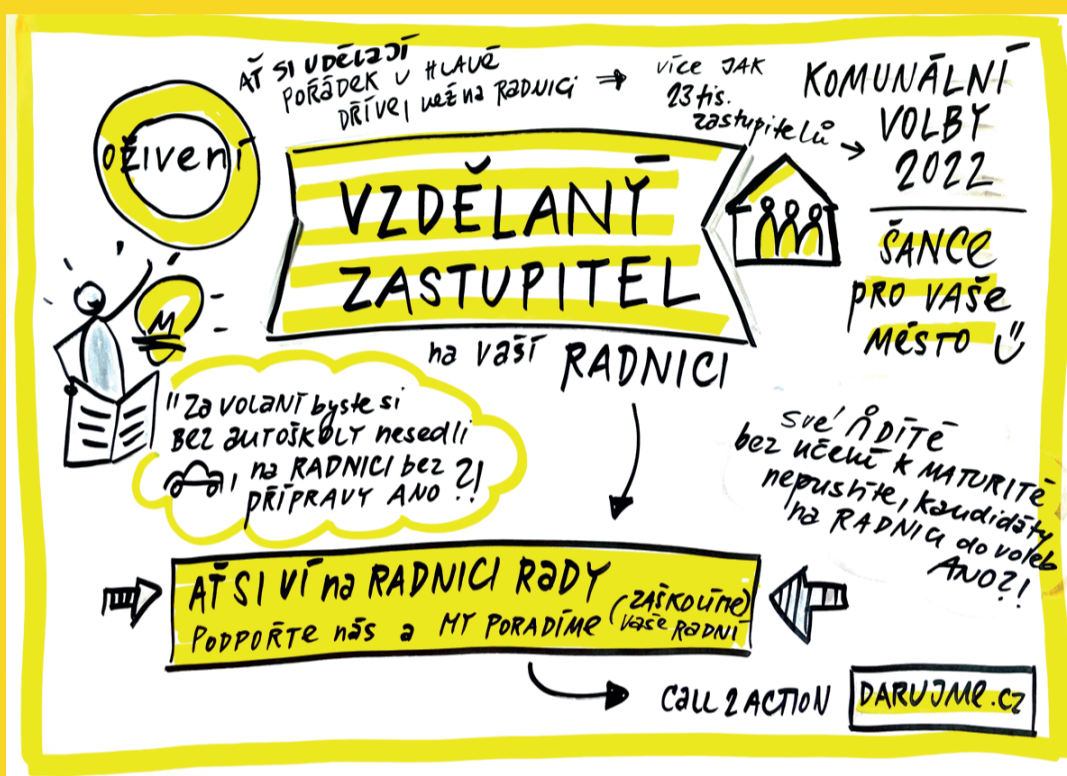 oživení
AŤ SI UDĚLAJÍ
POŘÁDEK V HLAVĚ
DŘÍVE, než na RADNICI
více JAK
23 tis.
zastupitelů
KOMUNÁLNÍ
VOLBY
2022
ŠANCE
PRO VAŠE
MĚSTO
VZDĚLANÝ
ZASTUPITEL
na vaší RADNICI
"Za VOLANÍ byste si
BEZ AUTOŠKOLY nesedli
, na RADNICI bez
PŘÍPRAVY ANO ?!
své DÍTĚ
bez učení K MATURITĚ
nepustíte, kandidáty
na RADNICI do voleb
ANO?!
AŤ SI VÍ na RADNICI RADY
PODPOŘTE nás a MY PORADÍME (ZAŠKOLÍME)
vaše RADNÍ
CALL 2 ACTION
DARUJME.CZ